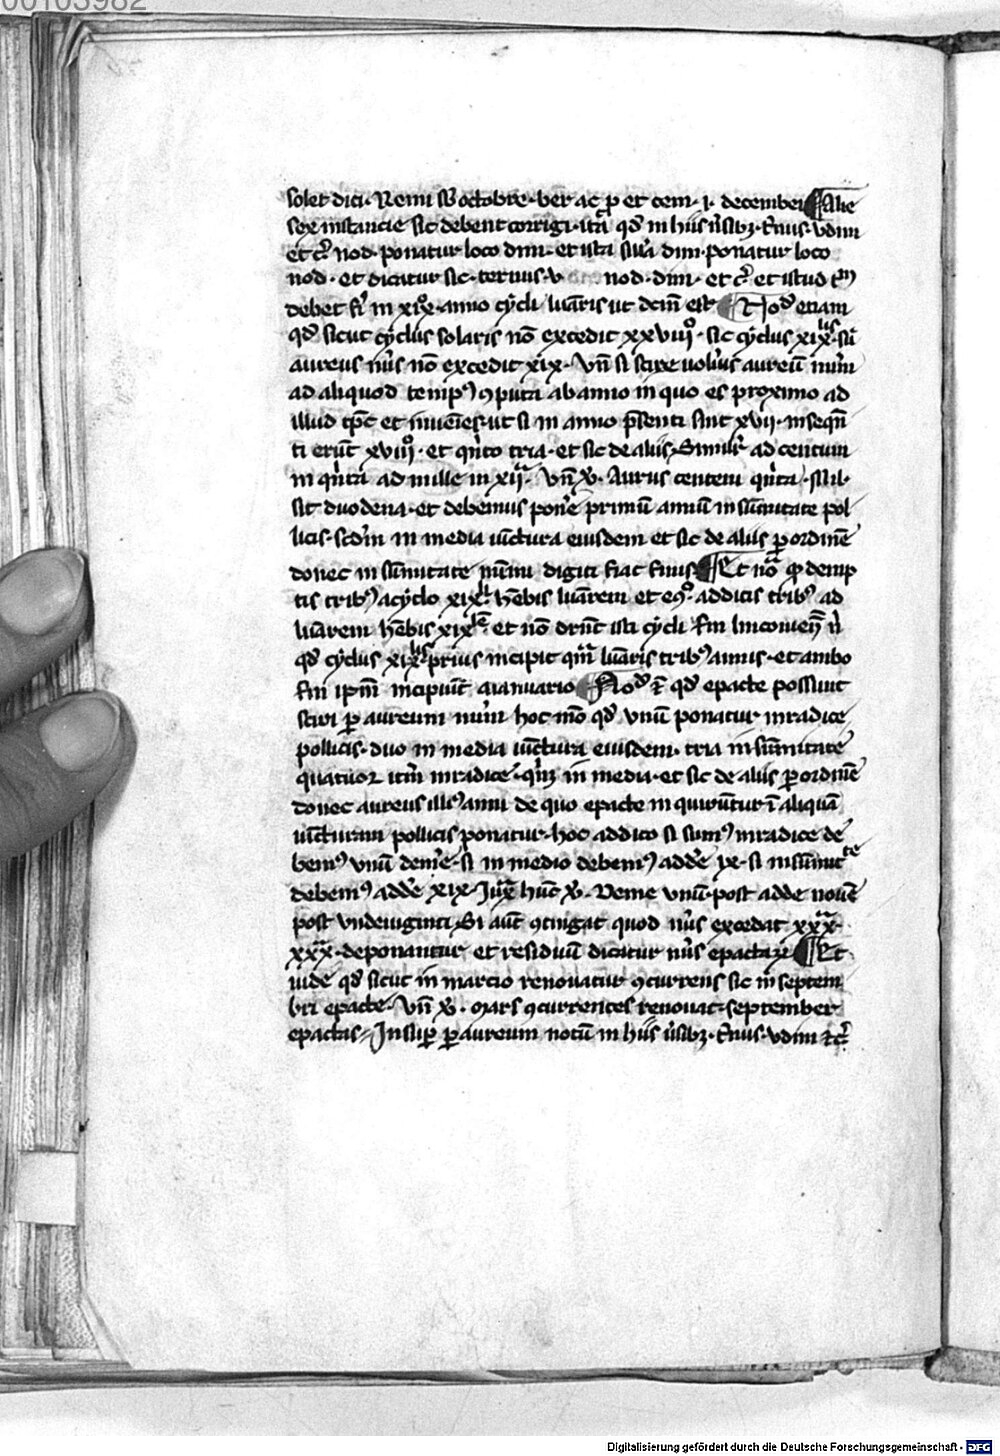 00103982
solet dici. Remi sb octobre. ber ac p et cem. i. december ¶ Alie
sex instancie sic debent corrigi. ita qd in hiis ūsibz. Eius. vdim
et cͦ nod. ponatur loco dim. et ista silla dim. ponatur loco
nod. et dicatur sic. ternus. v nod. dim. et cͦ et istud tm
debet fi in xix. anno cycli lunaris ut dcm est ¶ Nod etiam
qd sicut cyclus solaris nō excedit xxviii. sic cyclus xix
aureus nus nō excedit xix. Vn si scire volūs aureū num
ad aliquod temp9 9puta ab anno in quo es proximo ad
illud tpc et invenies. ut si in anno psenti sint xvii. in seqn
ti erūt xviii. et qnto tria. et sic de aliis. Similr ad centum
in qnta ad mille in xii. Vn v. Aurus centeni qnta. Mil.
sit duodena. et debemus pone primū annū in sūmitate pol
licis. scdm in media iūctura eiusdem et sic de aliis p ordinē
donec in sūmitate digiti fiat finis ¶ Et no q demp
tis trib9 a cyclo xix hēbis lunarem et eqo. additis trib9 ad
lunarem hēbis xix et nō dnt isti cycli
qd cyclus xix prius incipit qm lunaris trib9 annis. et ambo
fm ipm incipiūt a ianuario ¶ Nod qd epacte possunt
sciri p aureum num hoc mō qd vnū ponatur in radice
pollicis. duo in media iūctura eiusdem. tria in sūmitate
quatuor itm in radice. qnz in media. et sic de aliis p ordinē
donec aureus ill9 anni de quo epacte in quirūtur ī aliquā
iūcturam pollicis ponatur. hoc addito si sum9 in radice de
bem9 vnū deme. si in medio debem9 adde ix. si in sūmitate
debem9 adde xix. Iux hūc v. Deme vnū. post adde novē
post vndeviginti. Si aut 9tingat quod nūs excedat xxx.
xxx. deponantur et residuū dicatur nūs epactar ¶ Et
vide qd sicut in marcio renovatur 9currens sic in septem
bri epacte. Vn v. Mars 9currentes renovat. september
epactas. Insup p aureum notū in hiis ūsibz. Eius. vdim etc̄.
Digitalisierung gefördert durch die Deutsche Forschungsgemeinschaft - DFG